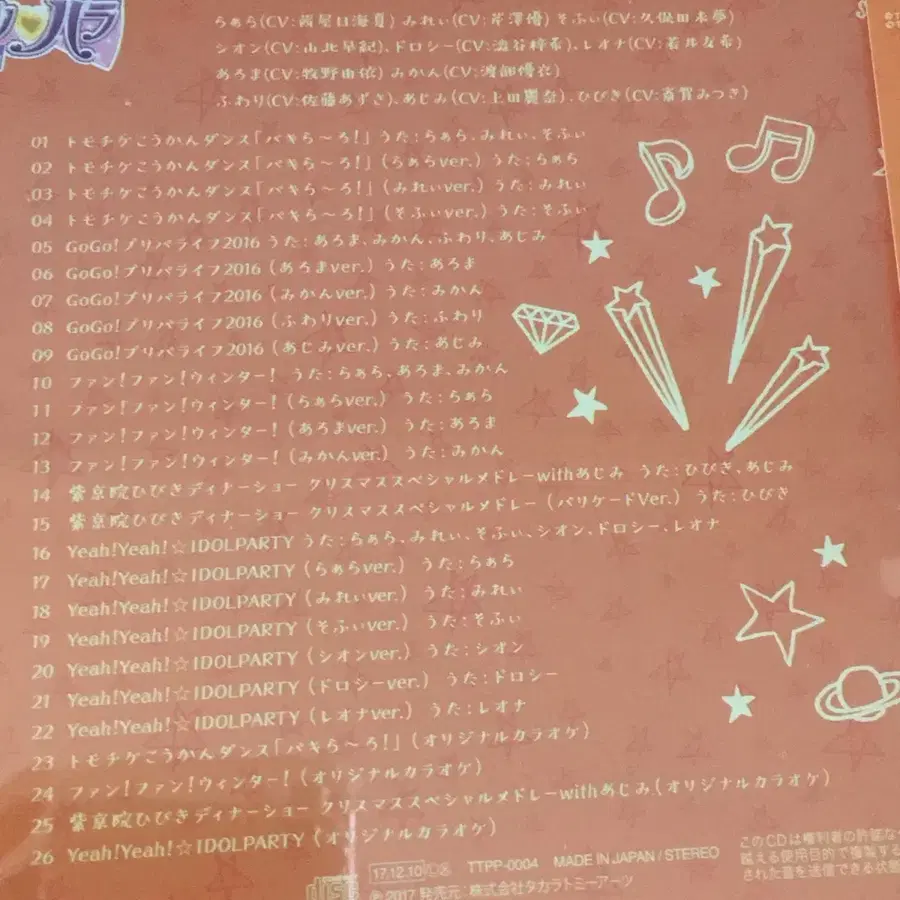 らぁら(CV:茜屋日海夏) みれぃ(CV:芹澤優) そふぃ(CV:久保田未夢)
シオン(CV:山北早紀)、ドロシー(CV:澁谷梓希)、レオナ(CV:若井友希)
あろま(CV:牧野由依) みかん(CV:渡部優衣)
ふわり(CV:佐藤あずさ)、あじみ(CV:上田麗奈)、ひびき(CV:斎賀みつき)
01 トモチケこうかんダンス「パキら〜ろ!」うた:らぁら、みれぃ、そふぃ
02 トモチケこうかんダンス「パキら〜ろ!」(らぁらver.) うた:らぁら
03 トモチケこうかんダンス「パキら〜ろ!」(みれぃver.) うた:みれぃ
04 トモチケこうかんダンス「パキら〜ろ!」(そふぃver.) うた:そふぃ
05 GoGo!プリパライフ2016 うた:あろま、みかん、ふわり、あじみ
06 GoGo!プリパライフ2016 (あろまver.) うた:あろま
07 GoGo!プリパライフ2016 (みかんver.) うた:みかん
08 GoGo!プリパライフ2016 (ふわりver.) うた:ふわり
09 GoGo!プリパライフ2016 (あじみver.) うた:あじみ
10 ファン!ファン!ウィンター! うた:らぁら、あろま、みかん
11 ファン!ファン!ウィンター! (らぁらver.) うた:らぁら
12 ファン!ファン!ウィンター! (あろまver.) うた:あろま
13 ファン!ファン!ウィンター! (みかんver.) うた:みかん
14 紫京院ひびきディナーショー クリスマススペシャルメドレーwithあじみ うた:ひびき、あじみ
15 紫京院ひびきディナーショー クリスマススペシャルメドレー (バリケードVer.) うた:ひびき
16 Yeah!Yeah!☆IDOLPARTY うた:らぁら、みれぃ、そふぃ、シオン、ドロシー、レオナ
17 Yeah!Yeah!☆IDOLPARTY (らぁらver.) うた:らぁら
18 Yeah!Yeah!☆IDOLPARTY (みれぃver.) うた:みれぃ
19 Yeah!Yeah!☆IDOLPARTY (そふぃver.) うた:そふぃ
20 Yeah!Yeah!☆IDOLPARTY (シオンver.) うた:シオン
21 Yeah!Yeah!☆IDOLPARTY (ドロシーver.) うた:ドロシー
22 Yeah!Yeah!☆IDOLPARTY (レオナver.) うた:レオナ
23 トモチケこうかんダンス「パキら〜ろ!」(オリジナルカラオケ)
24 ファン!ファン!ウィンター! (オリジナルカラオケ)
25 紫京院ひびきディナーショー クリスマススペシャルメドレーwithあじみ(オリジナルカラオケ)
26 Yeah!Yeah!☆IDOLPARTY (オリジナルカラオケ)
17.12.10 TTPP-0004 MADE IN JAPAN / STEREO
℗ 2017 発売元:株式会社タカラトミーアーツ
このCDは権利者の許諾な
越える使用目的で複製する
された音を送信できる状態